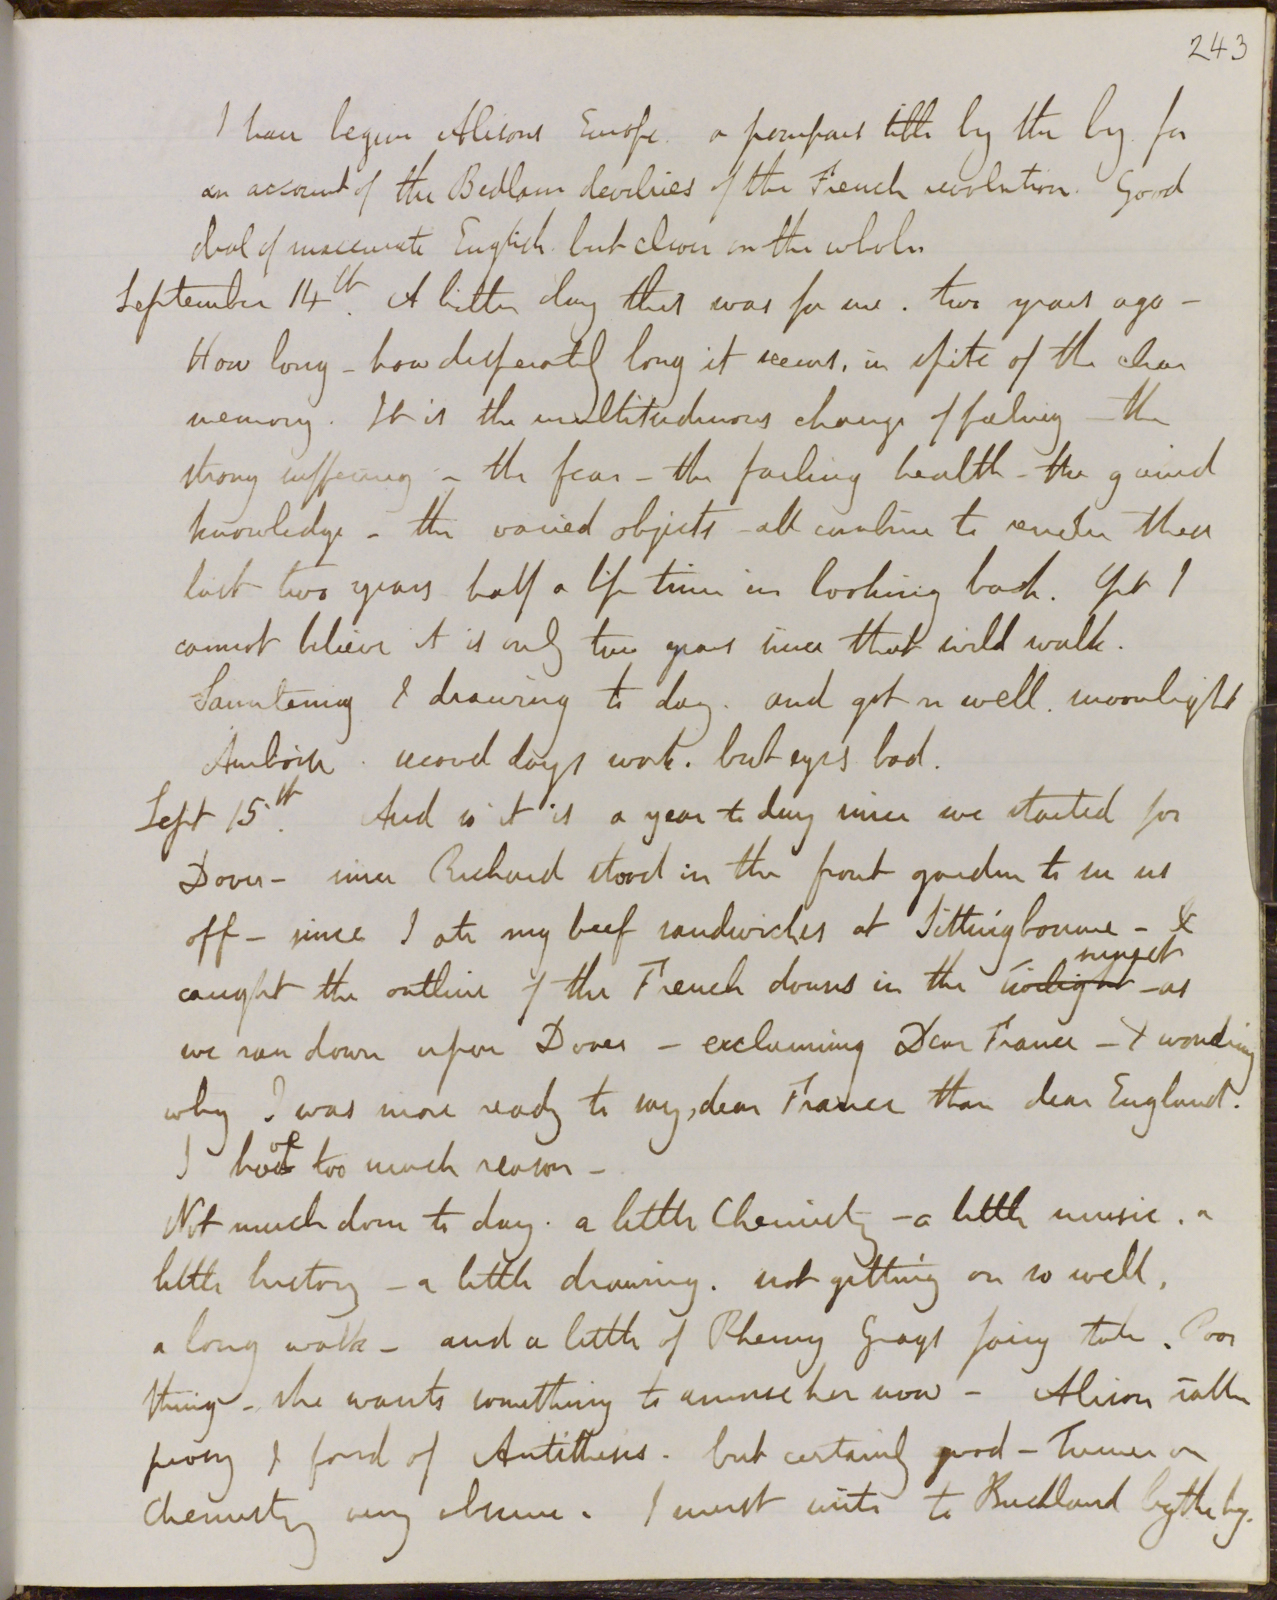 243
I have begun Alisons Europe. a pompous title by the by. for
an account of the Bedlam devilries of the French revolution. Good
deal of inaccurate English. but clever on the whole.
September 14th. A bitter day this was for me. two years ago –
How long – how desperately long it seems, in spite of the clear
memory. It is the multitudinous change of feeling – the
strong suffering – the fear – the failing health – the gained
knowledge – the varied objects – all combine to render these
last two years half a life time in looking back. Yet I
cannot believe it is only two years since that wild walk.
Sauntering & drawing to day. and got on well. moonlight
Amboise. second days work. but eyes bad.
Sept 15th. And so it is a year to day since we started for
Dover – since Richard stood in the front garden to see us
off – since I ate my beef sandwiches at Sittingbourne – &
caught the outline of the French downs in the twilight sunset – as
we ran down upon Dover – exclaiming Dear France – & wondering
why I was more ready to say, dear France than dear England.
I had too much reason –
Not much done to day. a little Chemistry – a little music. a
little history – a little drawing. not getting on so well,
a long walk – and a little of Phemy Grays fairy tale. Poor
thing – she wants something to amuse her now – Alison rather
prosy & fond of Antithesis. but certainly good – Turner on
Chemistry very obscure. I must write to Buckland by the by.